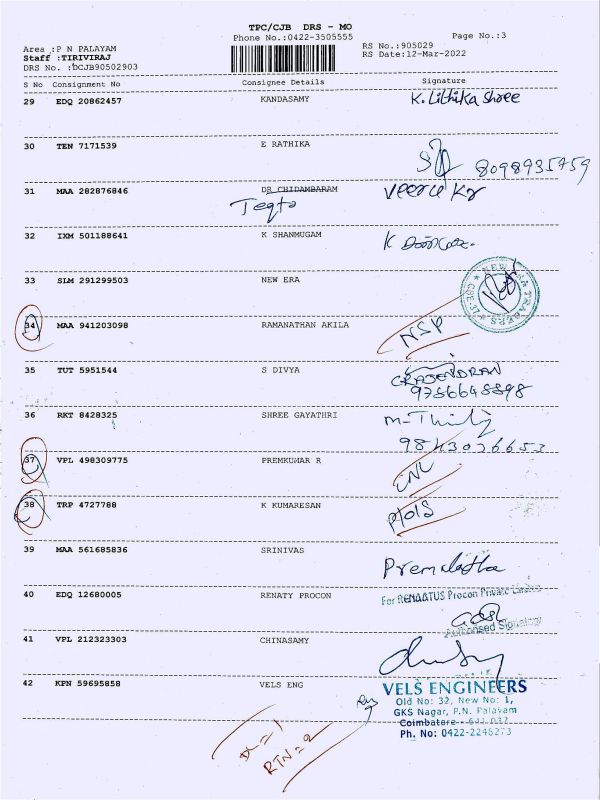 TPC/CJB DRS - MO
Phone No.:0422-3505555
Page No.:3
Area :P N PALAYAM
RS No.:905029
Staff :TIRIVIRAJ
RS Date:12-Mar-2022
DRS No. :DCJB90502903
S No Consignment No Consignee Details Signature
29 EDQ 20862457 KANDASAMY K. Lithika Shree
30 TEN 7171539 E RATHIKA
8098935759
31 MAA 282876846 DR CHIDAMBARAM
32 IXM 501188641 K SHANMUGAM
33 SLM 291299503 NEW ERA
34 MAA 941203098 RAMANATHAN AKILA NSP
35 TUT 5951544 S DIVYA
36 RKT 8428325 SHREE GAYATHRI
37 VPL 498309775 PREMKUMAR R CNL
38 TRP 4727788 K KUMARESAN
39 MAA 561685836 SRINIVAS
Premalatha
40 EDQ 12680005 RENATY PROCON
For REMAATUS Procon Private Limited
Authorised Signatory
41 VPL 212323303 CHINASAMY
42 KPN 59695858 VELS ENG
VELS ENGINEERS
Old No: 32, New No: 1,
GKS Nagar, P.N. Palayam
Coimbatore - 641 037
Ph. No: 0422-2246273
RTN = 2